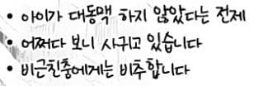 • 아이가 대동맥 하지 않았다는 전제
• 어쩌다 보니 사귀고 있습니다
• 비근친충에게는 비추합니다